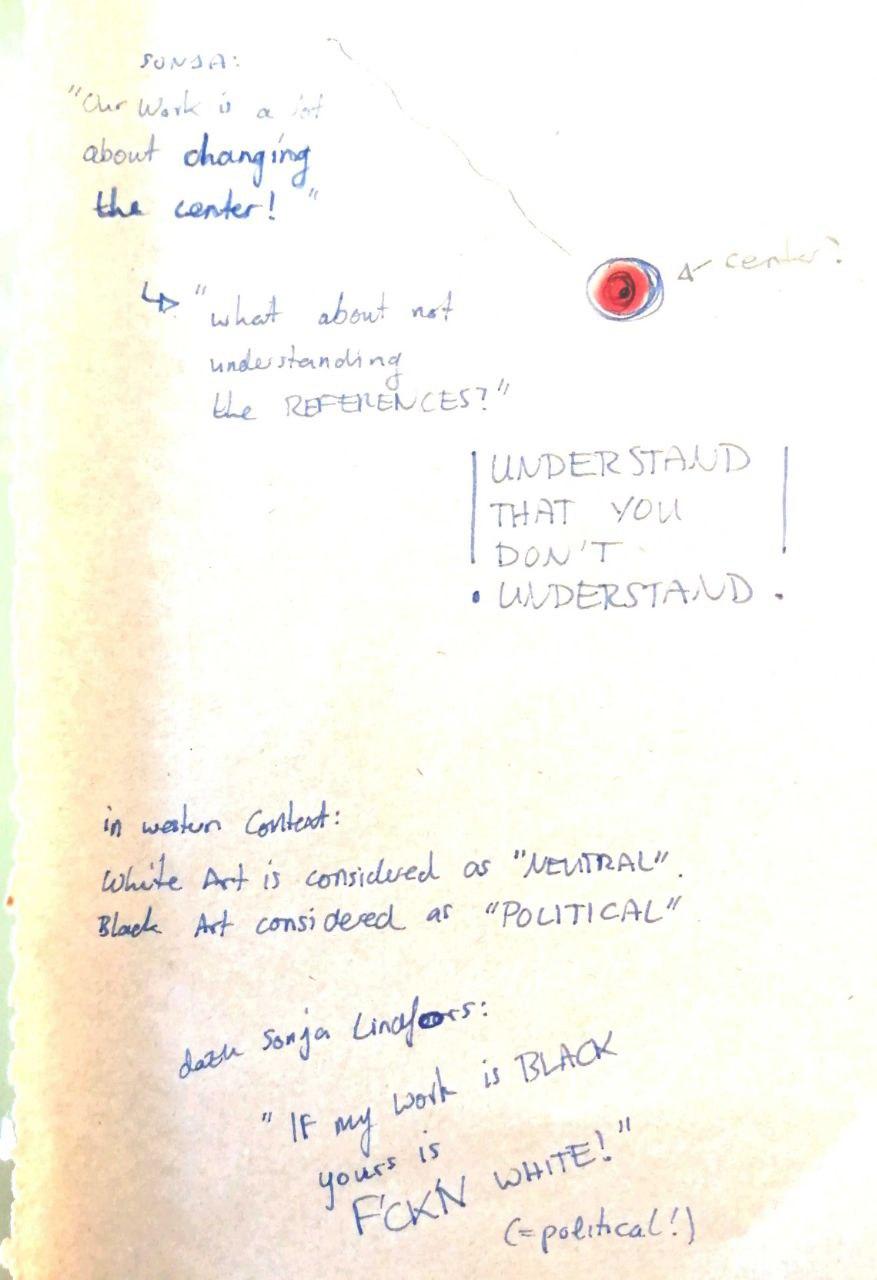 SONJA:
"Our Work is a lot
about changing
the center!"
center?
"what about not
understanding
the REFERENCES?"
UNDERSTAND
THAT YOU
DON'T
UNDERSTAND.
in western Context:
White Art is considered as "NEUTRAL".
Black Art considered as "POLITICAL"
dazu Sonja Lindfors:
"IF my work is BLACK
yours is
F'CK'N WHITE!"
(=political!)